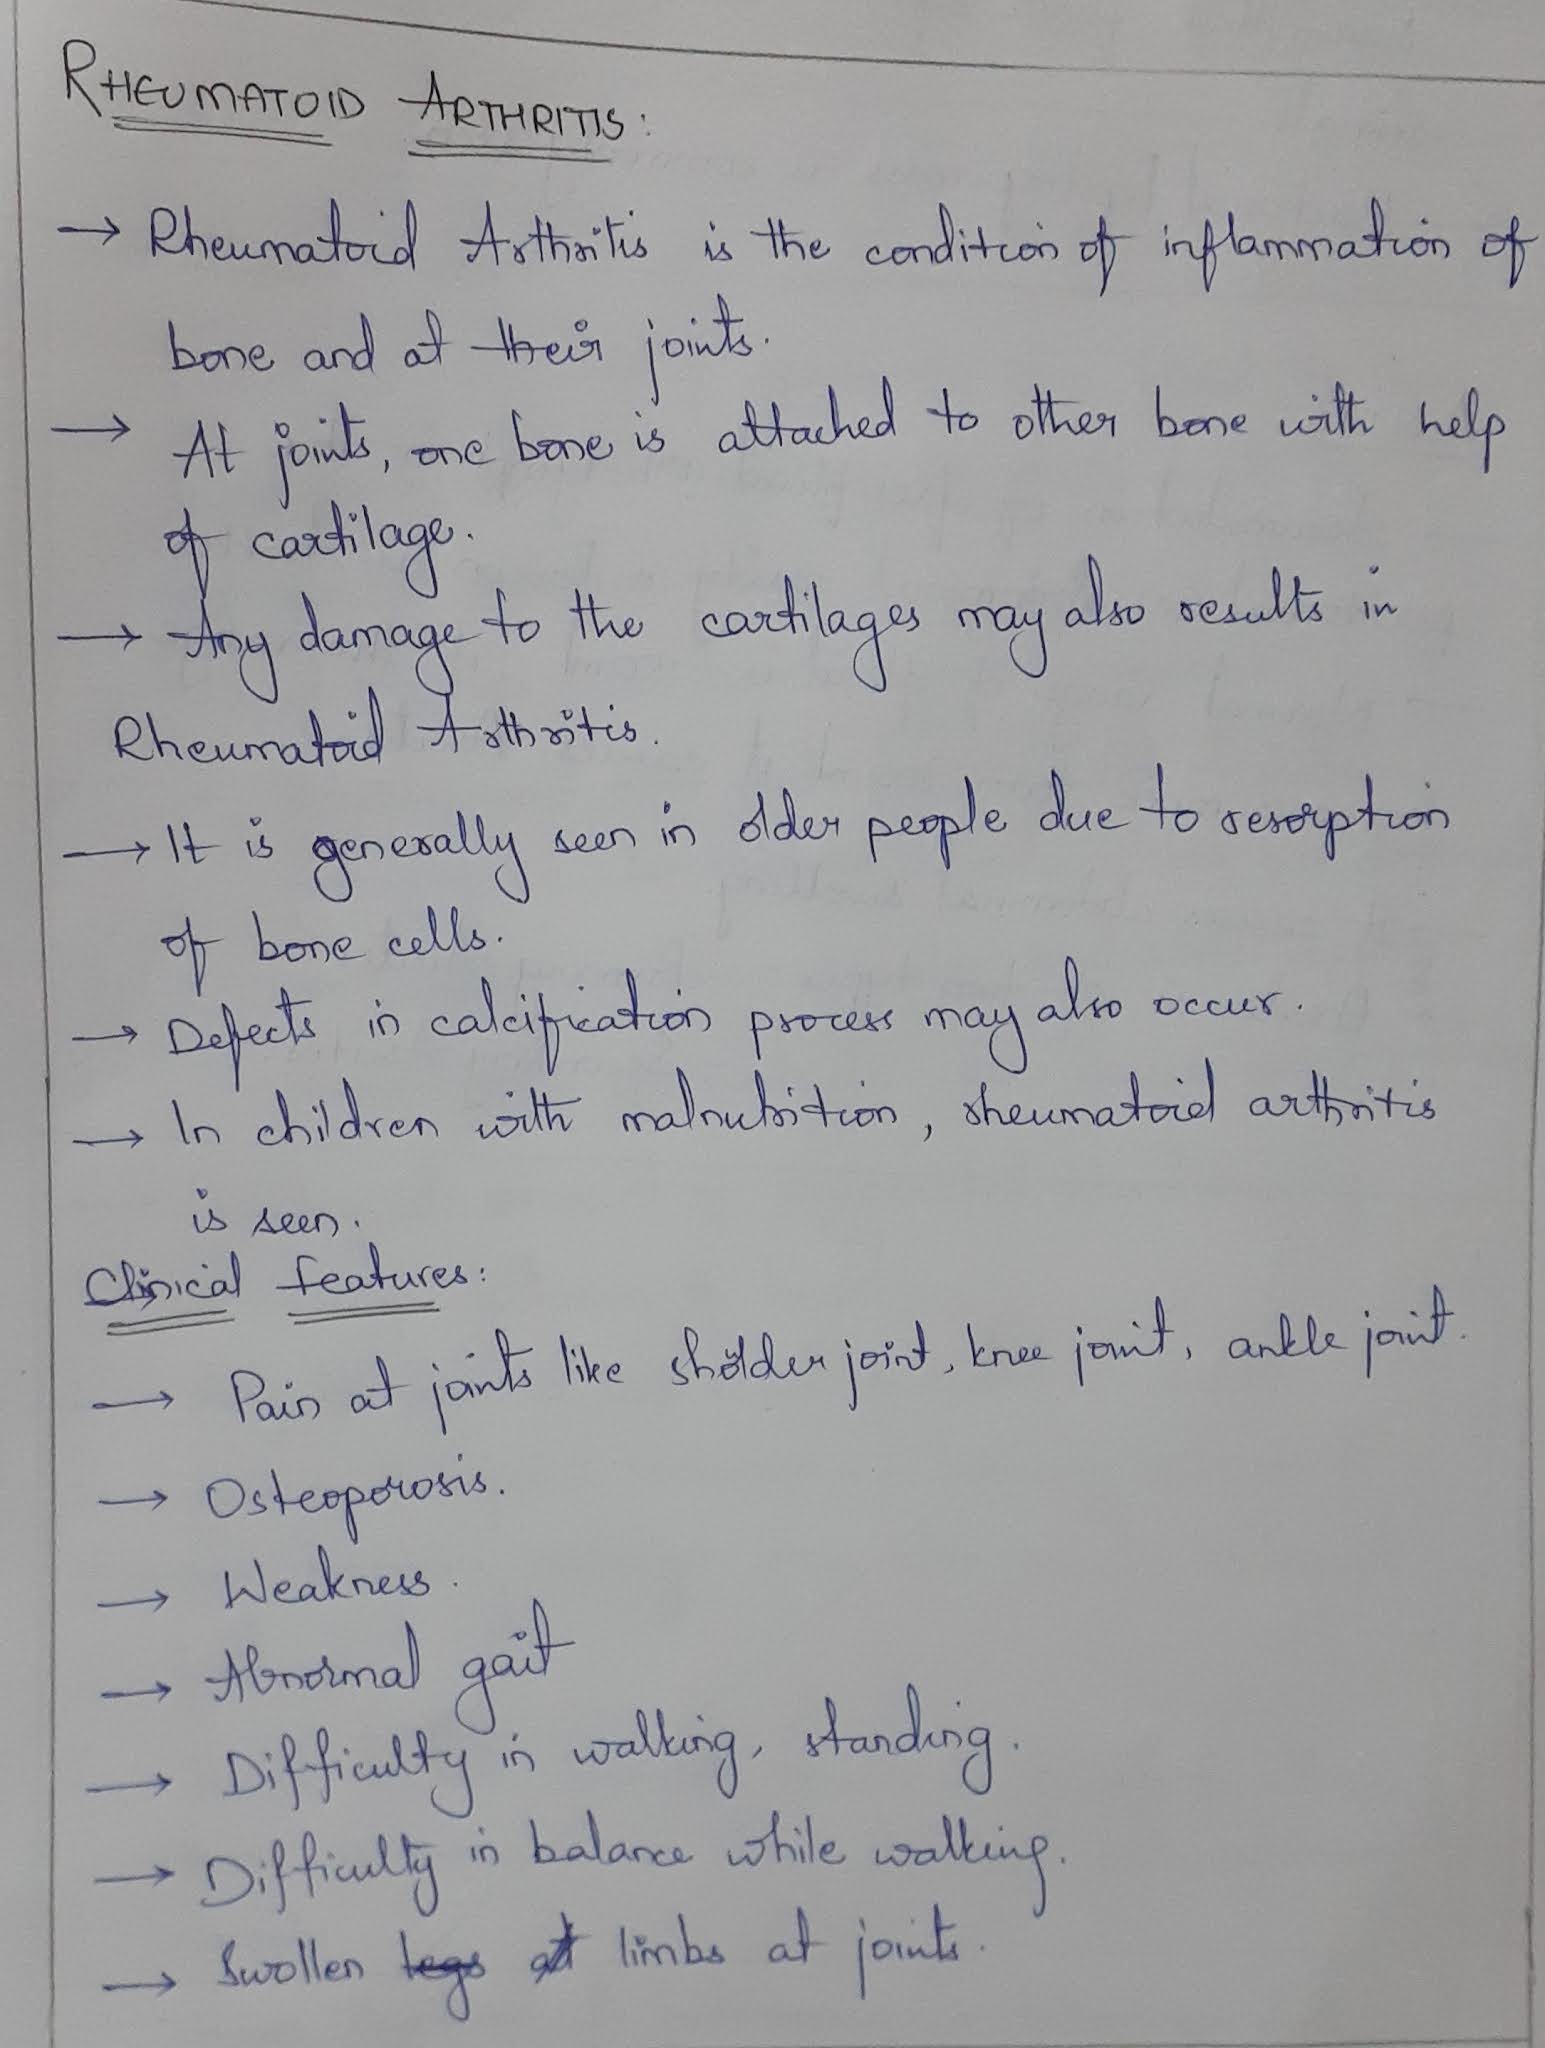 RHEUMATOID ARTHRITIS:
→ Rheumatoid Arthritis is the condition of inflammation of
bone and at their joints.
→ At joints, one bone is attached to other bone with help
of cartilage.
→ Any damage to the cartilages may also results in
Rheumatoid Arthritis.
→ It is generally seen in older people due to resorption
of bone cells.
→ Defects in calcification process may also occur.
→ In children with malnutrition, rheumatoid arthritis
is seen.
Clinical features:
→ Pain at joints like sholder joint, knee joint, ankle joint.
→ Osteoporosis.
→ Weakness.
→ Abnormal gait
→ Difficulty in walking, standing.
→ Difficulty in balance while walking.
→ Swollen limbs at joints.